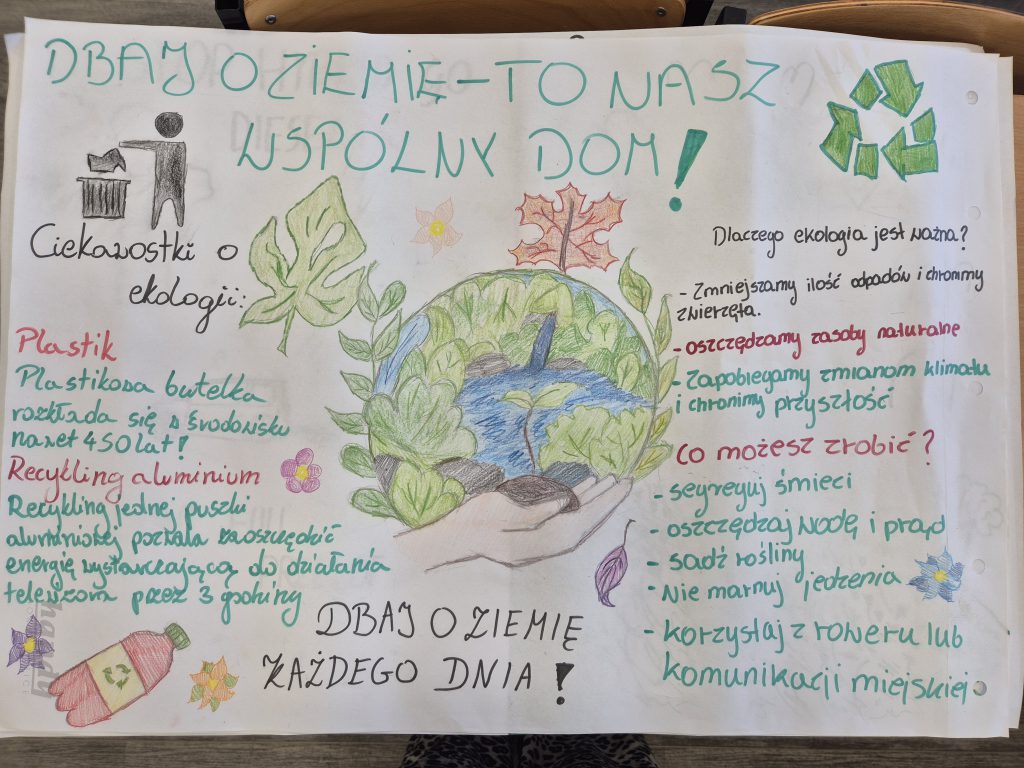 DBAJ O ZIEMIĘ – TO NASZ
WSPÓLNY DOM!
Ciekawostki o
ekologii:
Plastik
Plastikowa butelka
rozkłada się w środowisku
nawet 450 lat!
Recykling aluminium
Recykling jednej puszki
aluminiowej pozwala zaoszczędzić
energię wystarczającą do działania
telewizora przez 3 godziny
DBAJ O ZIEMIĘ
KAŻDEGO DNIA!
Dlaczego ekologia jest ważna?
- Zmniejszamy ilość odpadów i chronimy
zwierzęta.
- oszczędzamy zasoby naturalne
- Zapobiegamy zmianom klimatu
i chronimy przyszłość
Co możesz zrobić?
- segreguj śmieci
- oszczędzaj wodę i prąd
- sadź rośliny
- Nie marnuj jedzenia
- korzystaj z roweru lub
komunikacji miejskiej.